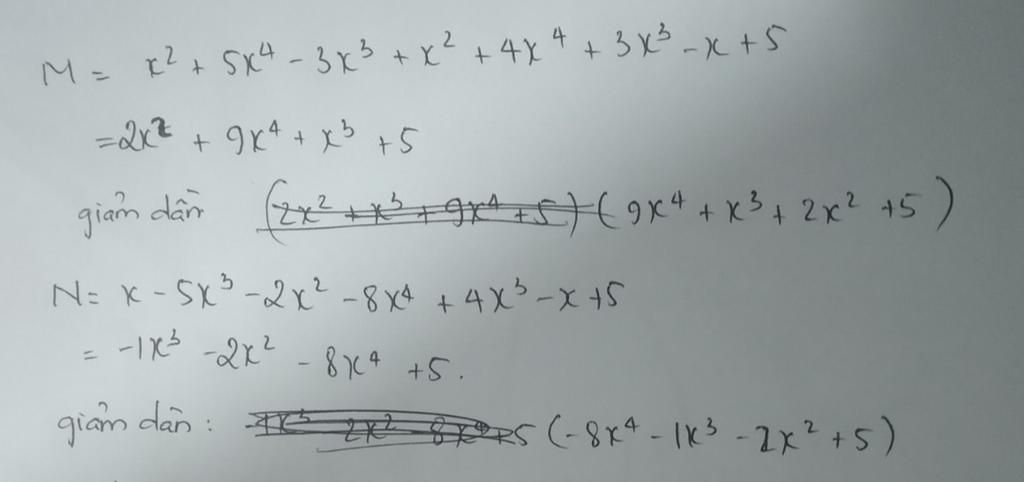 M = x² + 5x⁴ - 3x³ + x² + 4x⁴ + 3x³ - x + 5
= 2x² + 9x⁴ + x³ + 5
giảm dần (2x² + x³ + 9x⁴ + 5) (9x⁴ + x³ + 2x² + 5)
N = x - 5x³ - 2x² - 8x⁴ + 4x³ - x + 5
= -1x³ - 2x² - 8x⁴ + 5.
giảm dần : -1x³ 2x² 8x⁴ + 5 (-8x⁴ - 1x³ - 2x² + 5)